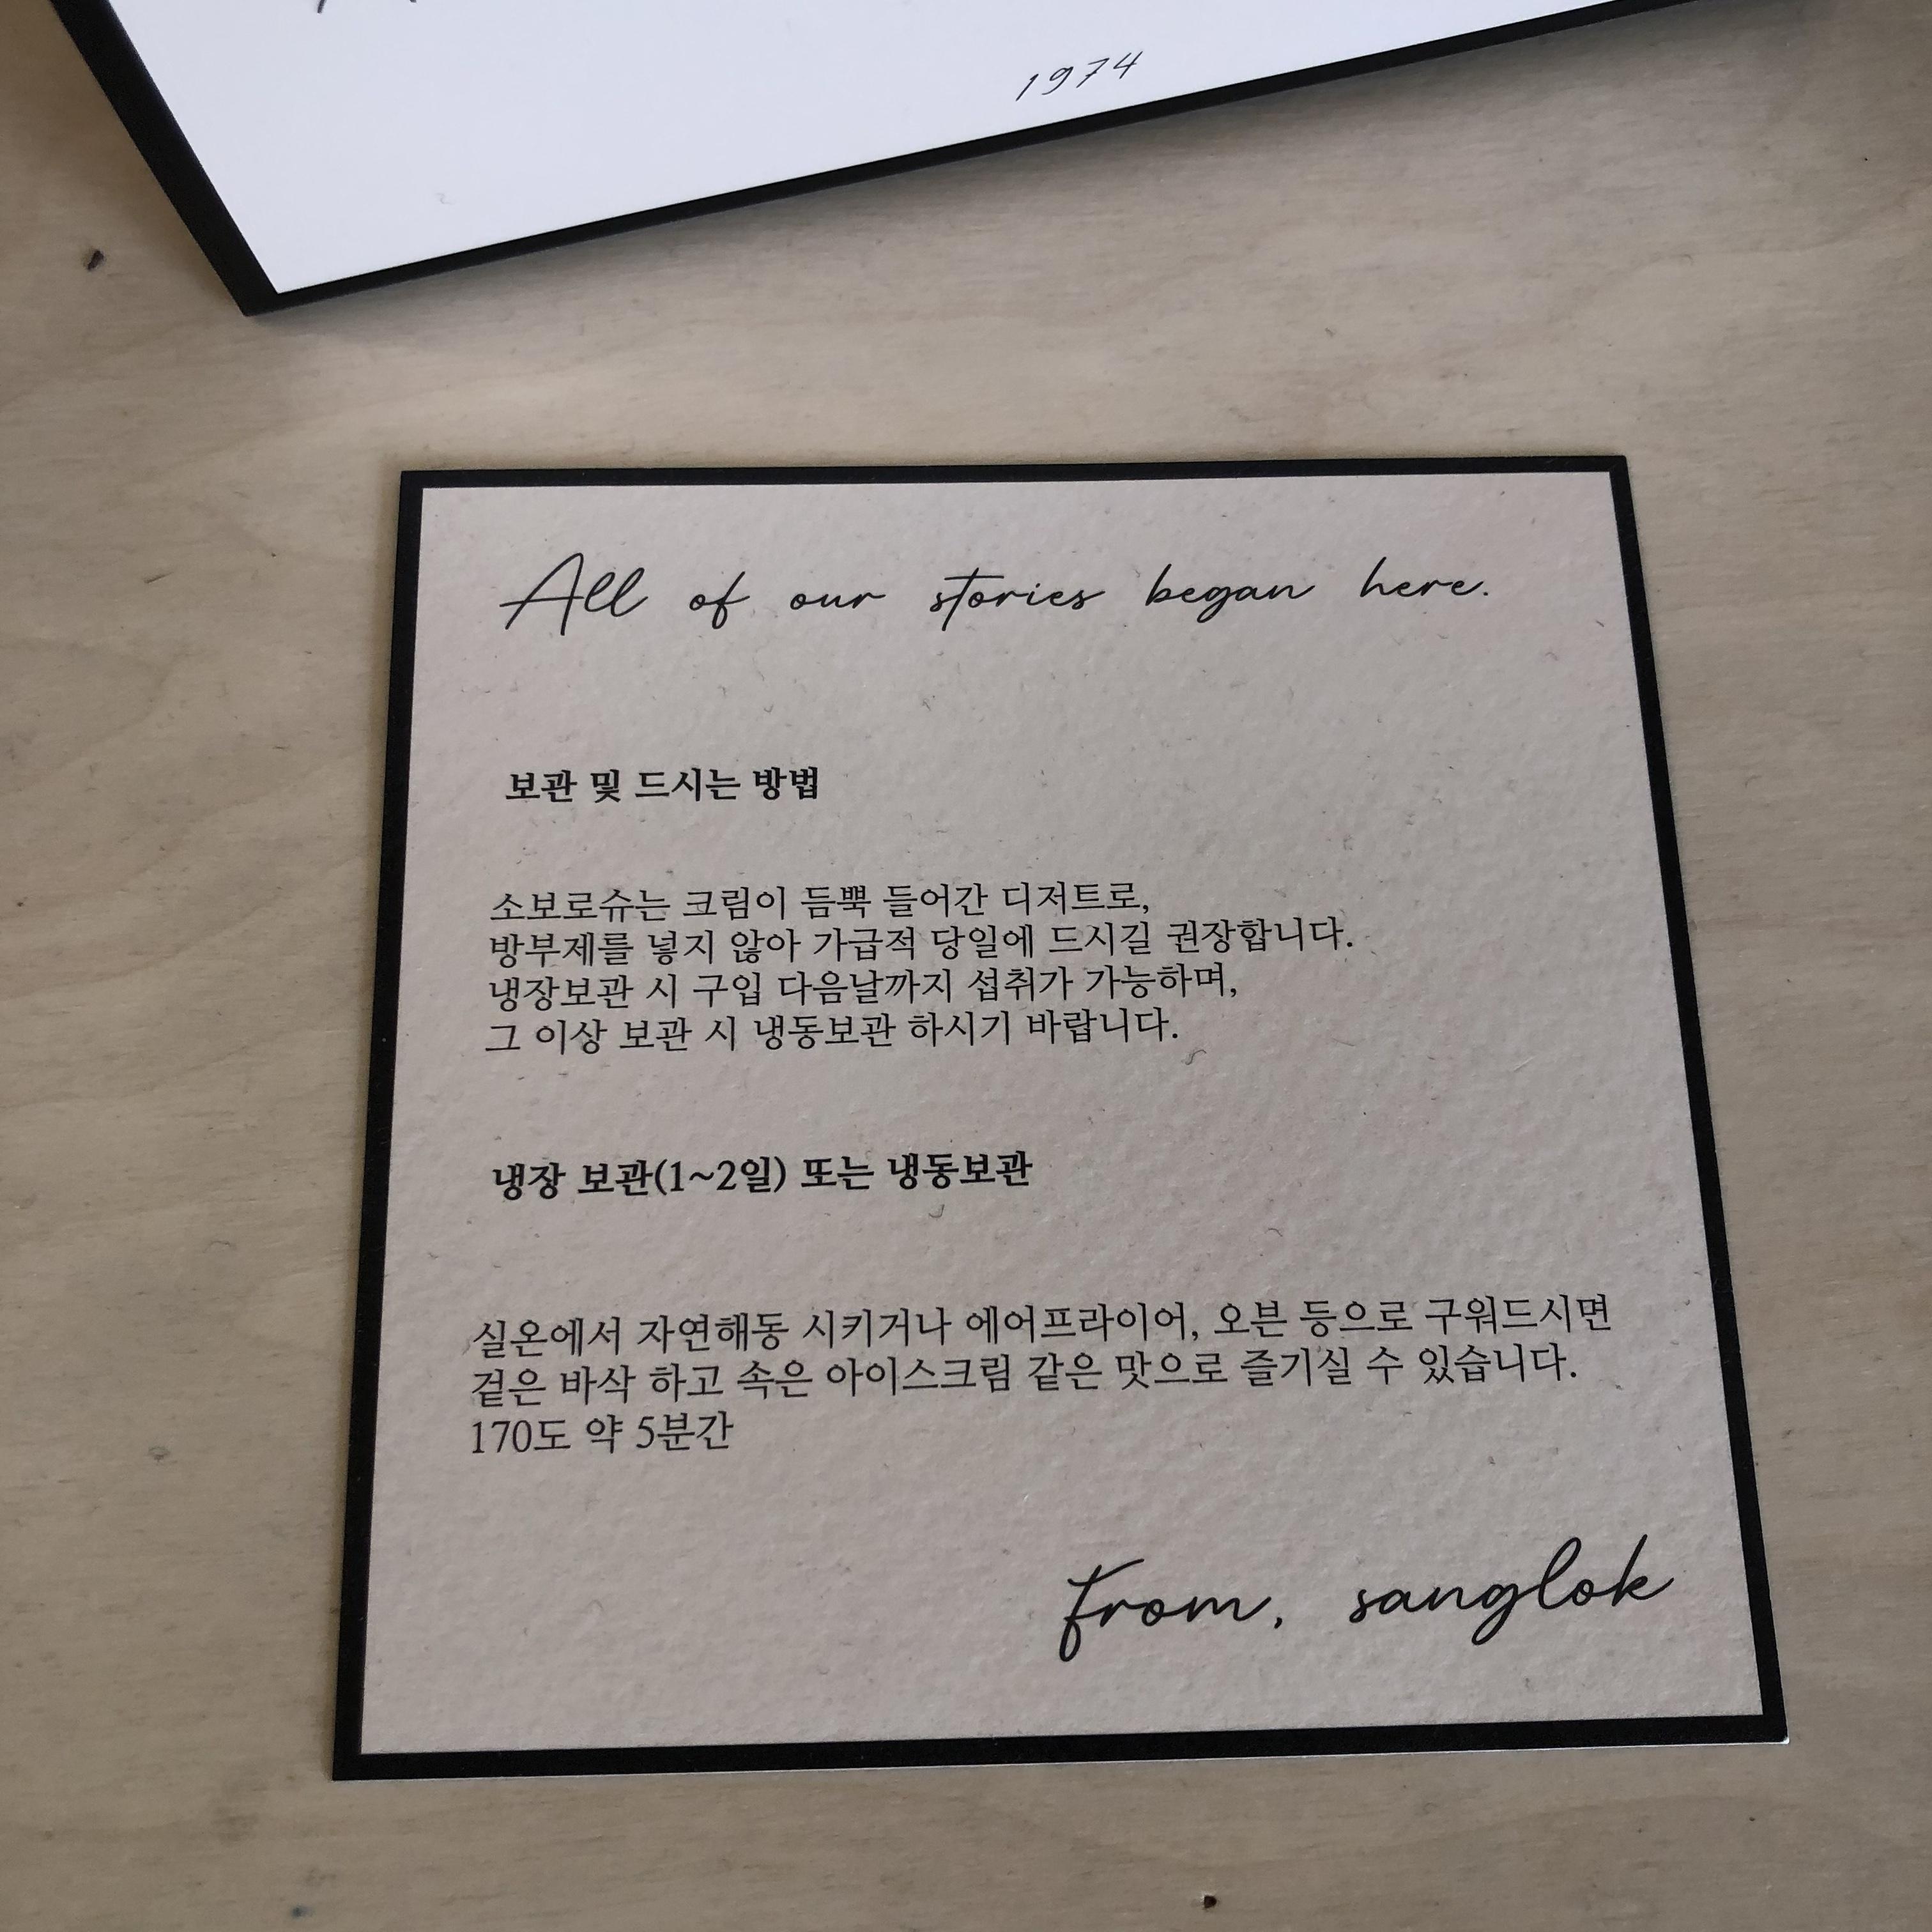 1974
All of our stories began here.
보관 및 드시는 방법
소보로슈는 크림이 듬뿍 들어간 디저트로,
방부제를 넣지 않아 가급적 당일에 드시길 권장합니다.
냉장보관 시 구입 다음날까지 섭취가 가능하며,
그 이상 보관 시 냉동보관 하시기 바랍니다.
냉장 보관(1~2일) 또는 냉동보관
실온에서 자연해동 시키거나 에어프라이어, 오븐 등으로 구워드시면
겉은 바삭 하고 속은 아이스크림 같은 맛으로 즐기실 수 있습니다.
170도 약 5분간
From, sanglok